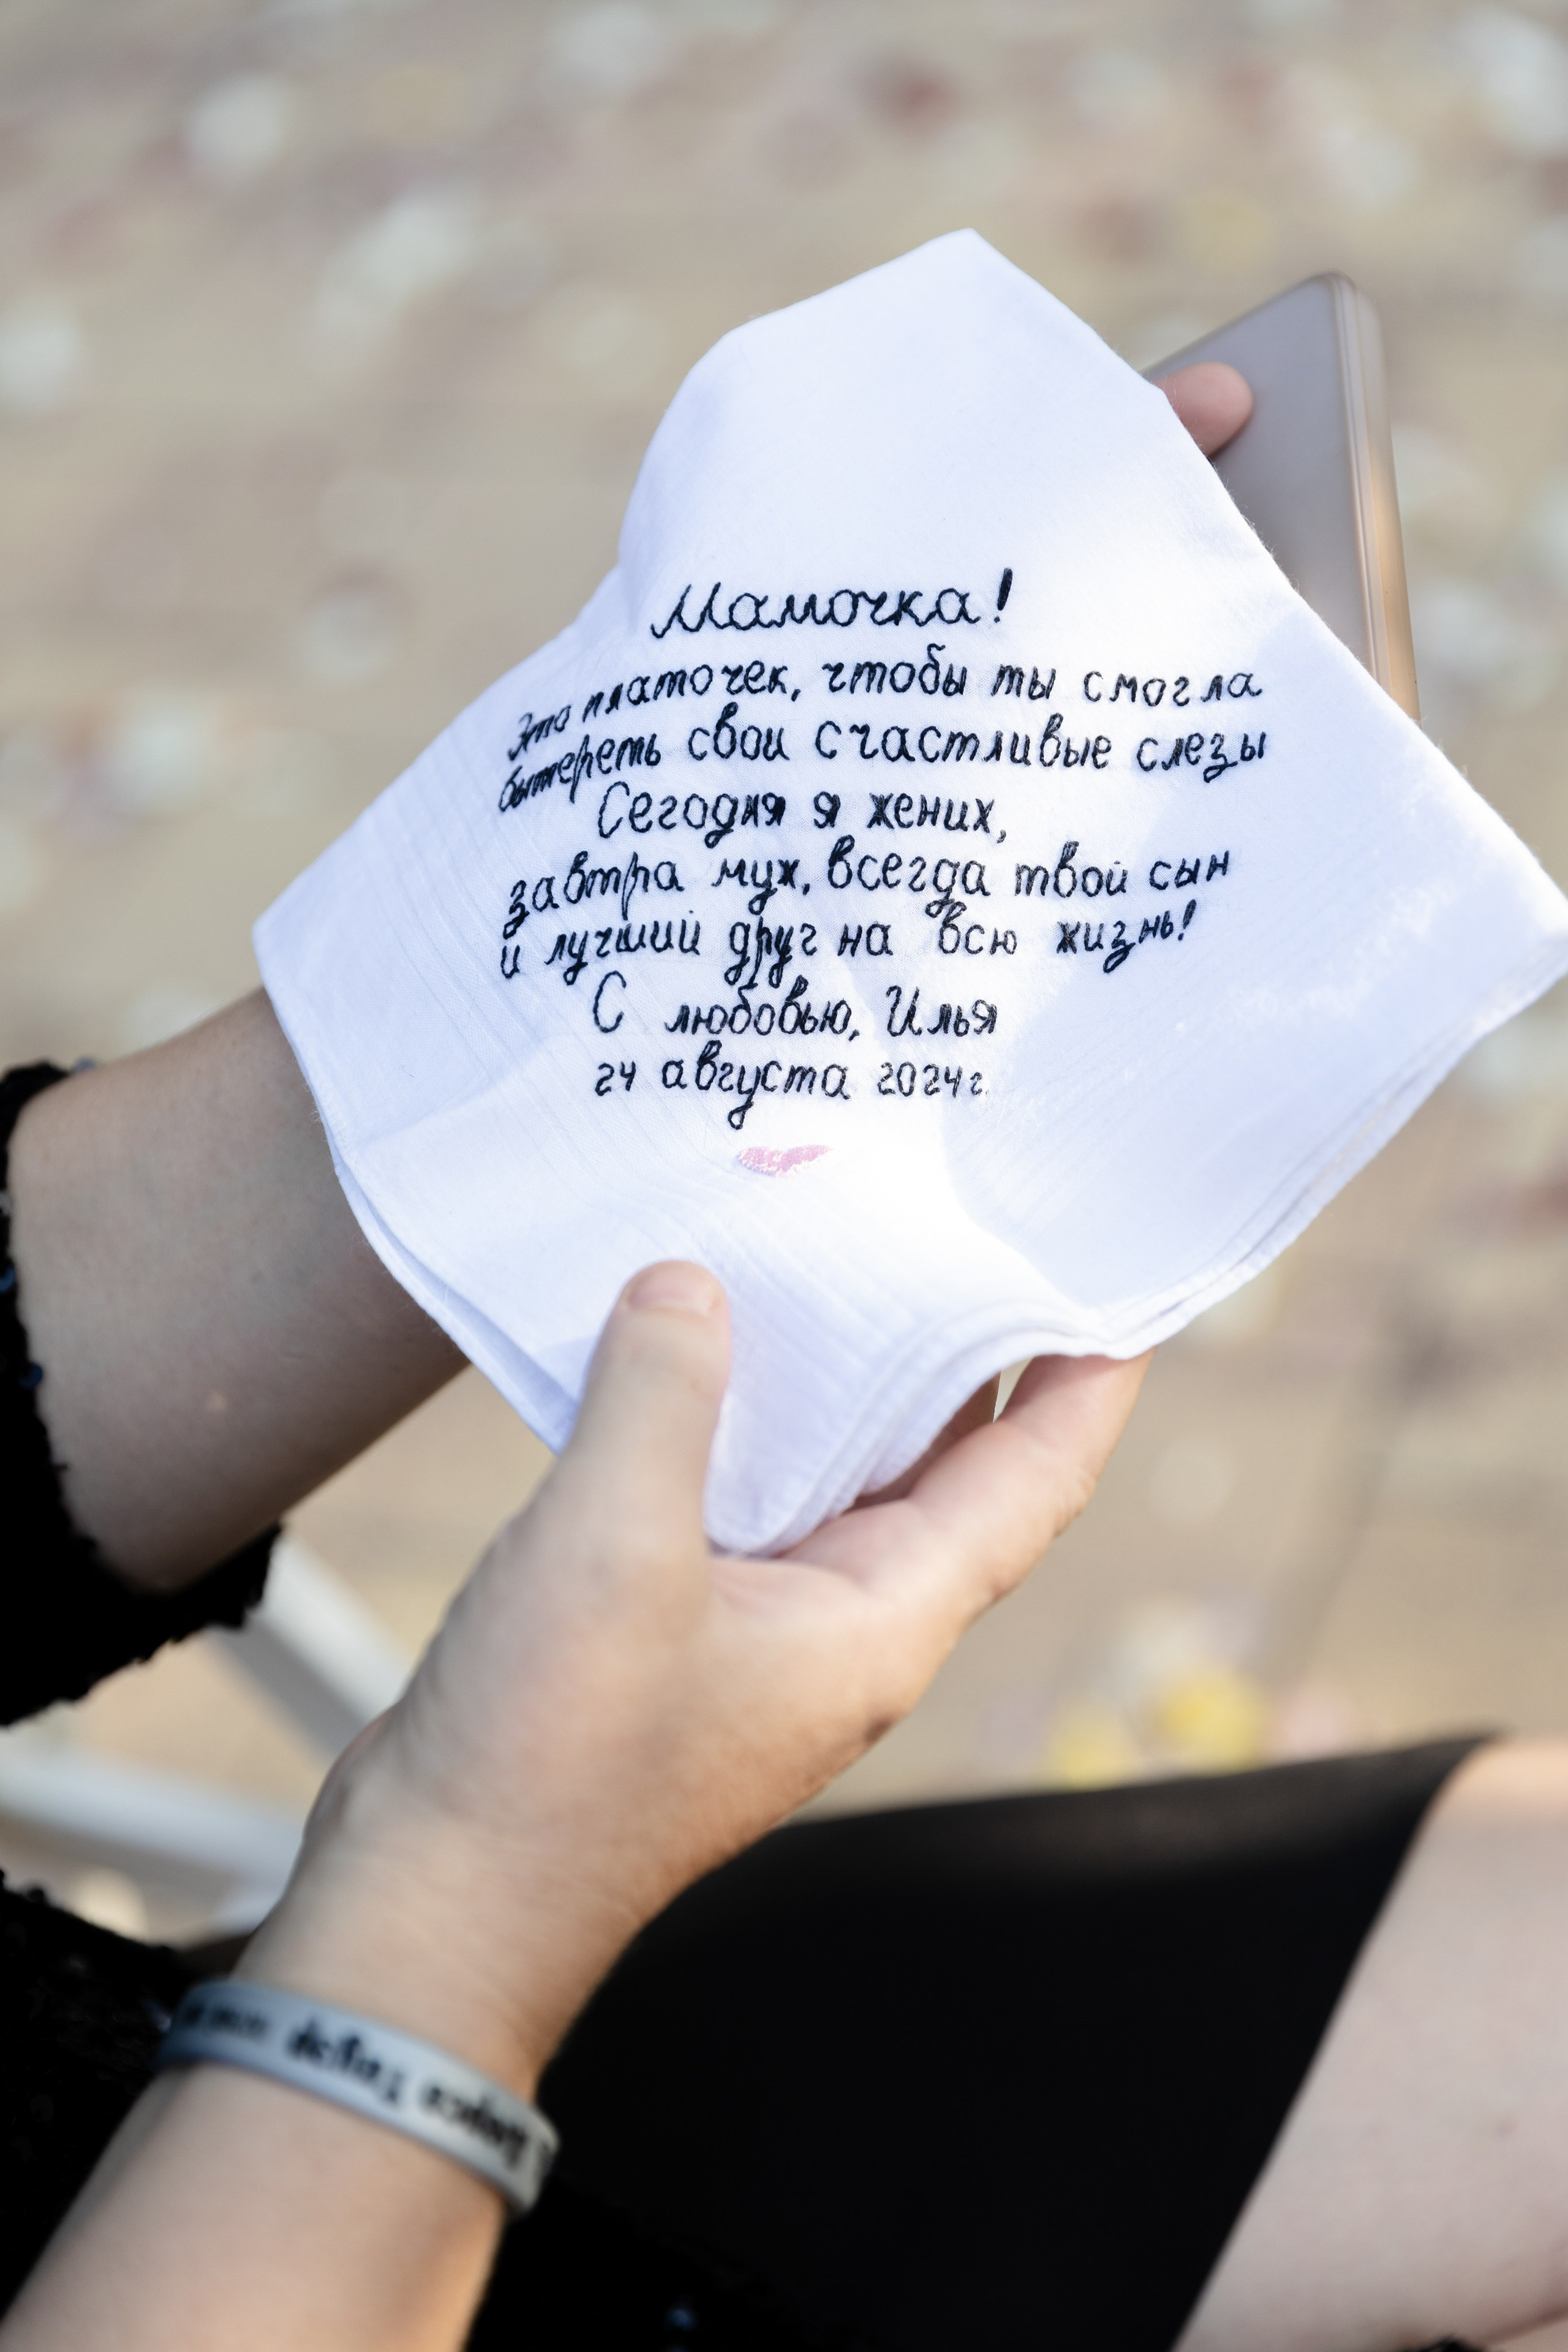 Мамочка!
Это платочек, чтобы ты смогла
вытереть свои счастливые слезы
Сегодня я жених,
завтра муж, всегда твой сын
и лучший друг на всю жизнь!
С любовью, Илья
24 августа 2024г.